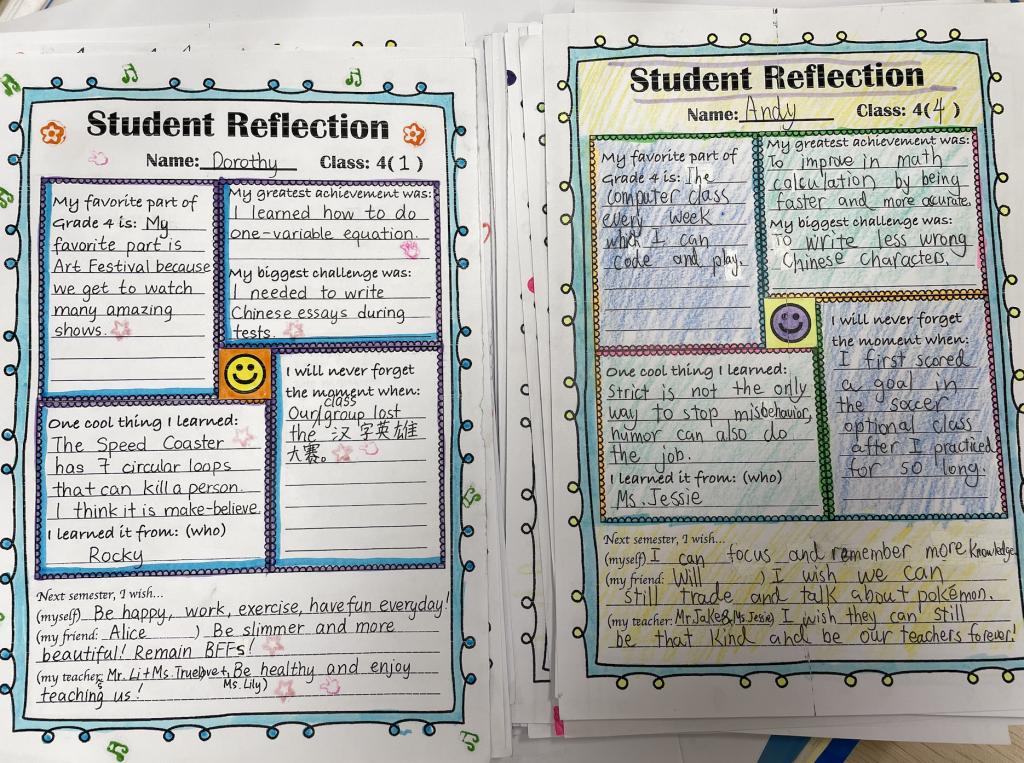 Student Reflection
Name: Dorothy Class: 4(1)
My favorite part of
Grade 4 is: My
favorite part is
Art Festival because
we get to watch
many amazing
shows.
My greatest achievement was:
I learned how to do
one-variable equation.
My biggest challenge was:
I needed to write
Chinese essays during
tests.
One cool thing I learned:
The Speed Coaster
has 7 circular loops
that can kill a person.
I think it is make-believe.
I learned it from: (who)
Rocky
I will never forget
the moment when:
class
Our/group lost
the 汉字英雄
大赛。
Next semester, I wish...
(myself) Be happy, work, exercise, have fun everyday!
(my friend: Alice ) Be slimmer and more
beautiful! Remain BFFs!
(my teachers: Mr. Li + Ms. Truelove + Be healthy and enjoy
Ms. Lily)
teaching us!
Student Reflection
Name: Andy Class: 4(4)
My favorite part of
Grade 4 is: The
computer class
every week
which I can
code and play.
My greatest achievement was:
To improve in math
calculation by being
faster and more accurate.
My biggest challenge was:
To write less wrong
Chinese characters.
One cool thing I learned:
Strict is not the only
way to stop misbehavior,
humor can also do
the job.
I learned it from: (who)
Ms. Jessie
I will never forget
the moment when:
I first scored
a goal in
the soccer
optional class
after I practiced
for so long.
Next semester, I wish...
(myself) I can focus and remember more knowledge.
(my friend: Will ) I wish we can
still trade and talk about pokémon.
(my teacher: Mr. Jake & Ms. Jessie) I wish they can still
be that kind and be our teachers forever!